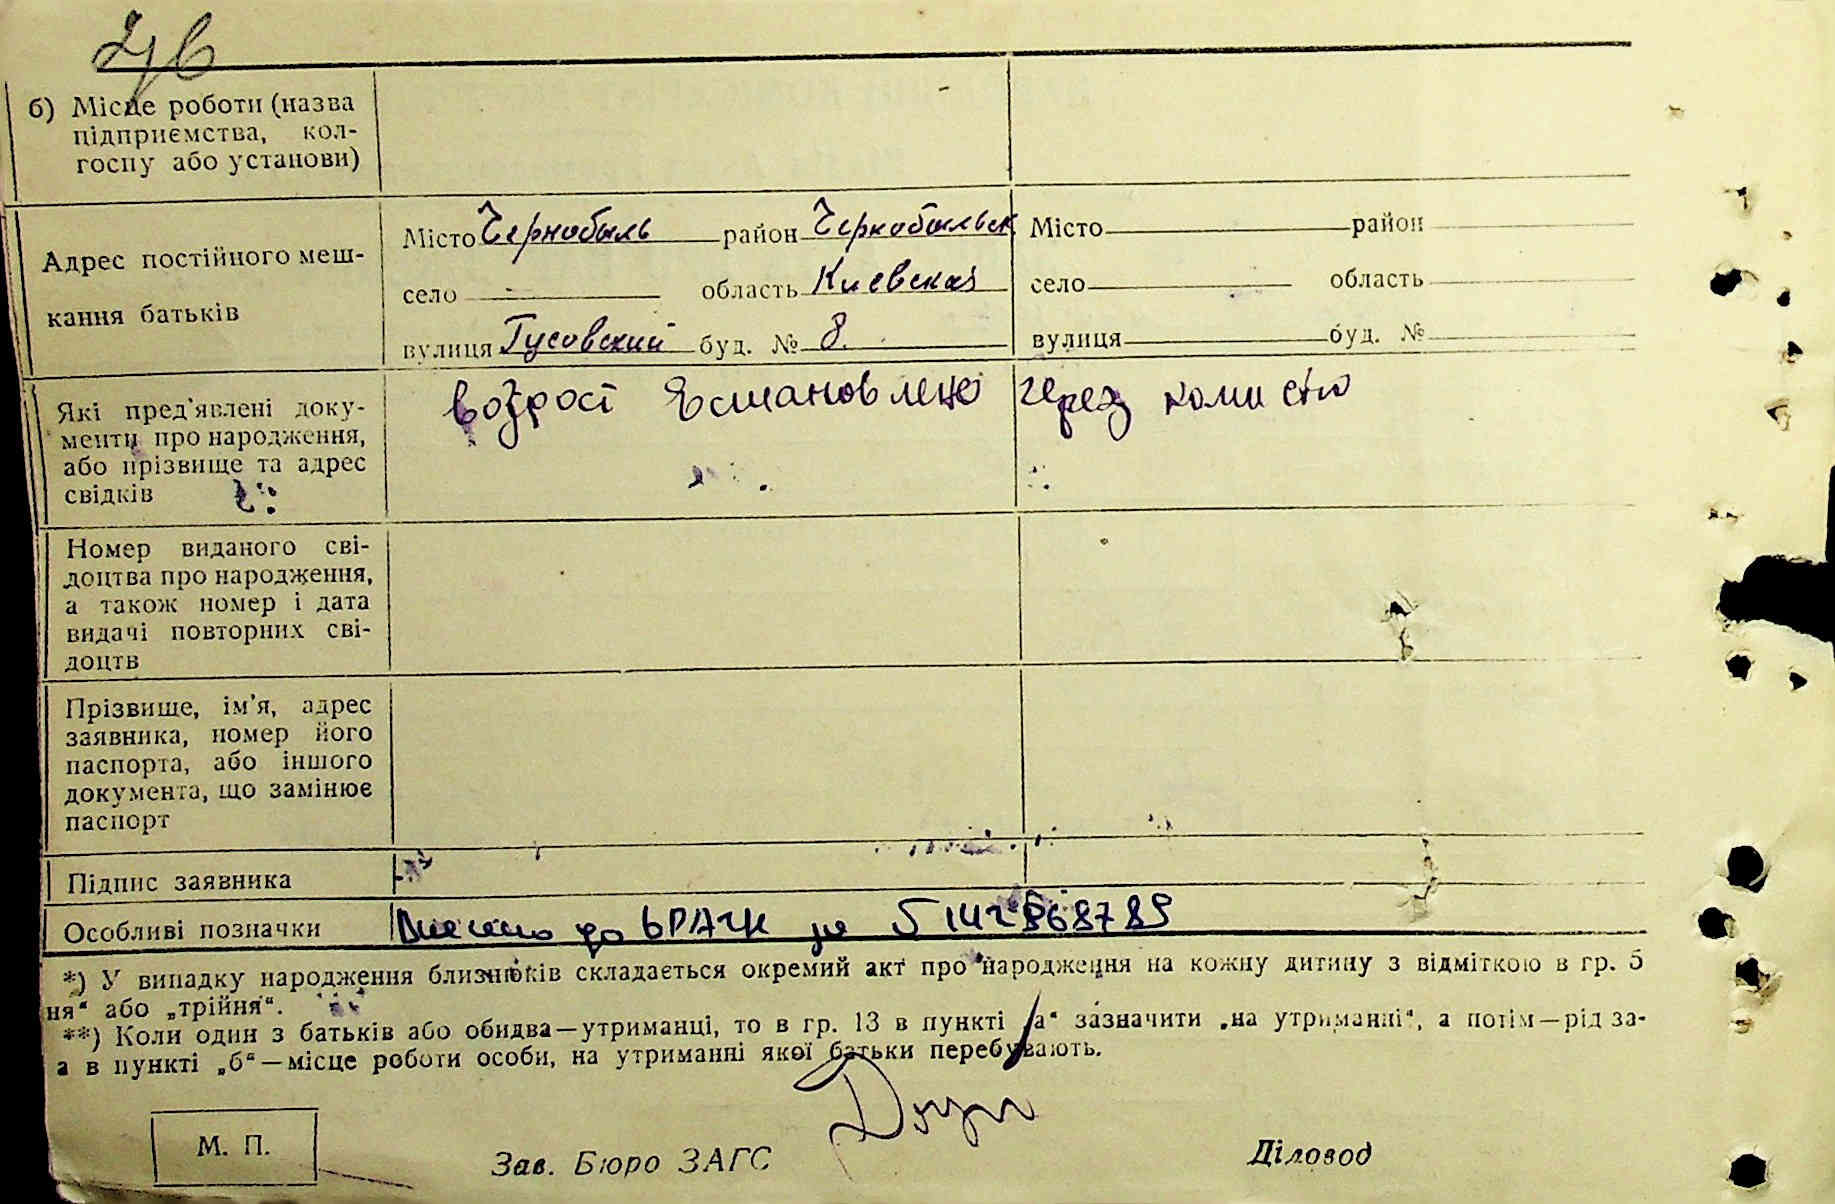 б) Місце роботи (назва
підприємства, кол-
госпу або установи)
Адрес постійного меш-
кання батьків
Місто Чернобыль район Чернобыльск
село - область Киевская
вулиця Гусовский буд. № 8
Місто район
село область
вулиця буд. №
Які пред'явлені доку-
менти про народження,
або прізвище та адрес
свідків
возрост установлено через комисію
Номер виданого сві-
доцтва про народження,
а також номер і дата
видачі повторних сві-
доцтв
Прізвище, ім'я, адрес
заявника, номер його
паспорта, або іншого
документа, що замінює
паспорт
Підпис заявника
Особливі позначки
Внесено до ЬРАЦК за
*) У випадку народження близнюків складається окремий акт про народження на кожну дитину з відміткою в гр. 5
ня“ або „трійня“.
**) Коли один з батьків або обидва—утриманці, то в гр. 13 в пункті „а“ зазначити „на утриманні“, а потім—рід за-
а в пункті „б“—місце роботи особи, на утриманні якої батьки перебувають.
М. П.
Зав. Бюро ЗАГС
Діловод